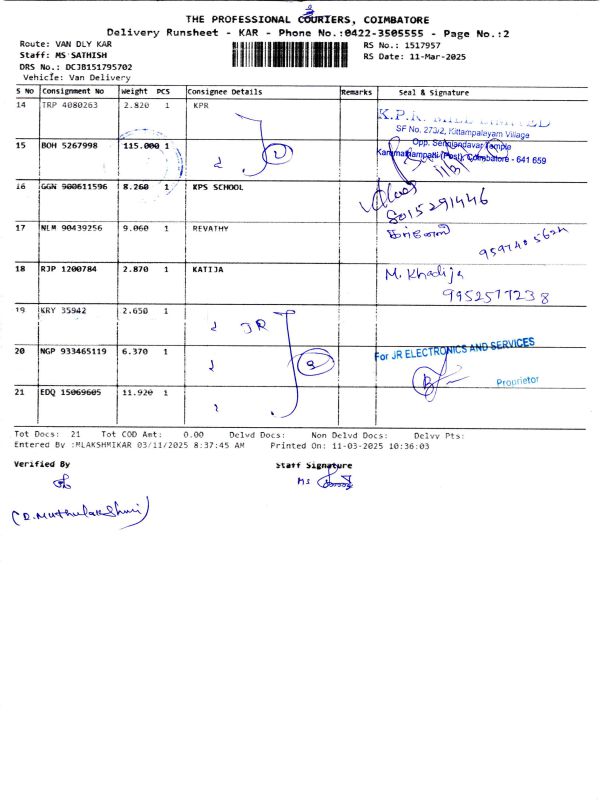 THE PROFESSIONAL COURIERS, COIMBATORE
Delivery Runsheet - KAR - Phone No.:0422-3505555 - Page No.:2
Route: VAN DLY KAR
Staff: MS SATHISH
DRS No.: DCJB151795702
Vehicle: Van Delivery
RS No.: 1517957
RS Date: 11-Mar-2025
S No Consignment No Weight PCS Consignee Details Remarks Seal & Signature
14 TRP 4080263 2.820 1 KPR
K.P.R. MILL LIMITED
SF No. 273/2, Kittampalayam Village
15 BOH 5267998 115.000 1
Opp. Sennandavar Temple
Karumathampatti (Post), Coimbatore - 641 659
16 GGN 900611596 8.260 1 KPS SCHOOL
8015291446
17 NLM 90439256 9.060 1 REVATHY
18 RJP 1200784 2.870 1 KATIJA
M. Khadija
9952577238
19 KRY 35942 2.650 1
JR
20 NGP 933465119 6.370 1
3
For JR ELECTRONICS AND SERVICES
Proprietor
21 EDQ 15069605 11.920 1
Tot Docs: 21 Tot COD Amt: 0.00 Delvd Docs: Non Delvd Docs: Delvy Pts:
Entered By :MLAKSHMIKAR 03/11/2025 8:37:45 AM Printed On: 11-03-2025 10:36:03
Verified By
Staff Signature
MS
(D. Muthulakshmi)